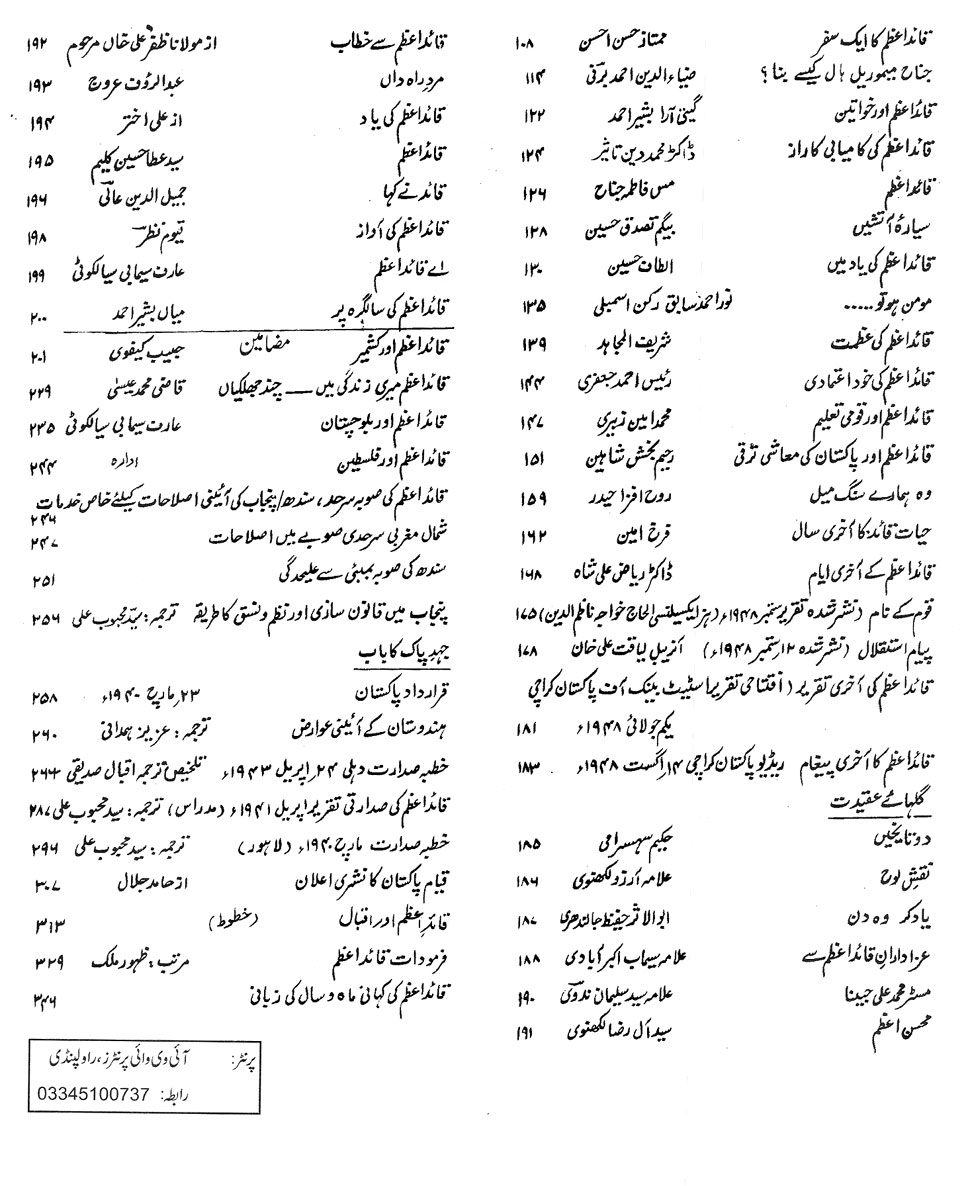 قائداعظم کا ایک سفر ممتاز حسن احسن ۱۰۸
جناح میموریل ہال کیسے بنا؟ ضیاء الدین احمد برنی ۱۱۴
قائداعظم اور خواتین گیتی آرا بشیر احمد ۱۲۲
قائداعظم کی کامیابی کا راز ڈاکٹر محمد دین تاثیر ۱۲۴
قائداعظم مس فاطمہ جناح ۱۲۶
سیارۂ آتشیں بیگم تصدق حسین ۱۲۸
قائداعظم کی یاد میں الطاف حسین ۱۳۰
مومن ہو تو ..... نور احمد سابق رکن اسمبلی ۱۳۵
قائداعظم کی عظمت شریف المجاہد ۱۳۹
قائداعظم کی خود اعتمادی رئیس احمد جعفری ۱۴۴
قائداعظم اور قومی تعلیم محمد امین زبیری ۱۴۷
قائداعظم اور پاکستان کی معاشی ترقی رحیم بخش شاہین ۱۵۱
وہ ہمارے سنگ میل روح افزا حیدر ۱۵۹
حیات قائد کا آخری سال فرخ امین ۱۶۲
قائداعظم کے آخری ایام ڈاکٹر ریاض علی شاہ ۱۶۸
قوم کے نام (نشر شدہ تقریر ستمبر ۱۹۴۸ء) (ہز ایکسیلنسی الحاج خواجہ ناظم الدین) ۱۷۵
پیام استقلال (نشر شدہ ۱۲ ستمبر ۱۹۴۸ء) آنریبل لیاقت علی خان ۱۷۸
قائداعظم کی آخری تقریر (افتتاحی تقریر اسٹیٹ بینک آف پاکستان کراچی
یکم جولائی ۱۹۴۸ء ۱۸۱
قائداعظم کا آخری پیغام ریڈیو پاکستان کراچی ۱۴ اگست ۱۹۴۸ء ۱۸۳
گلہائے عقیدت
دو تاریخیں حکیم سہسرامی ۱۸۵
نقش لوح علامہ آرزو لکھنوی ۱۸۶
یاد کر وہ دن ابوالاثر حفیظ جالندھری ۱۸۷
عزاداران قائداعظم سے علامہ سیماب اکبر آبادی ۱۸۸
مسٹر محمد علی جینا علامہ سید سلیمان ندوی ۱۹۰
محسن اعظم سید آل رضا لکھنوی ۱۹۱
قائداعظم سے خطاب از مولانا ظفر علی خاں مرحوم ۱۹۲
مرد راہ داں عبدالرؤف عروج ۱۹۳
قائداعظم کی یاد از علی اختر ۱۹۴
قائداعظم سید عطا حسین کلیم ۱۹۵
قائد نے کہا جمیل الدین عالی ۱۹۶
قائداعظم کی آواز قیوم نظر ۱۹۸
اے قائداعظم عارف سیمابی سیالکوٹی ۱۹۹
قائداعظم کی سالگرہ پر میاں بشیر احمد ۲۰۰
مضامین
قائداعظم اور کشمیر حبیب کیفوی ۲۰۱
قائداعظم میری زندگی میں — چند جھلکیاں قاضی محمد عیسیٰ ۲۲۹
قائداعظم اور بلوچستان عارف سیمابی سیالکوٹی ۲۳۵
قائداعظم اور فلسطین ادارہ ۲۴۴
قائداعظم کی صوبہ سرحد، سندھ/پنجاب کی آئینی اصلاحات کیلئے خاص خدمات ۲۴۶
شمال مغربی سرحدی صوبے میں اصلاحات ۲۴۷
سندھ کی صوبہ بمبئی سے علیحدگی ۲۵۱
پنجاب میں قانون سازی اور نظم و نسق کا طریقہ ترجمہ: سید محبوب علی ۲۵۶
جہد پاک کا باب
قرارداد پاکستان ۲۳ مارچ ۱۹۴۰ء ۲۵۸
ہندوستان کے آئینی عوارض ترجمہ: عزیز ہمدانی ۲۶۰
خطبہ صدارت دہلی ۲۴ اپریل ۱۹۴۳ء تلخیص ترجمہ اقبال صدیقی ۲۶۶
قائداعظم کی صدارتی تقریر اپریل ۱۹۴۱ء (مدراس) ترجمہ: سید محبوب علی ۲۸۷
خطبہ صدارت مارچ ۱۹۴۰ء (لاہور) ترجمہ: سید محبوب علی ۲۹۶
قیام پاکستان کا نشری اعلان از حامد جلال ۳۰۷
قائداعظم اور اقبال (خطوط) ۳۱۳
فرمودات قائداعظم مرتب: ظہور ملک ۳۲۹
قائداعظم کی کہانی ماہ و سال کی زبانی ۳۴۶
پرنٹر: آئی وی وائی پرنٹرز، راولپنڈی
رابطہ: 03345100737